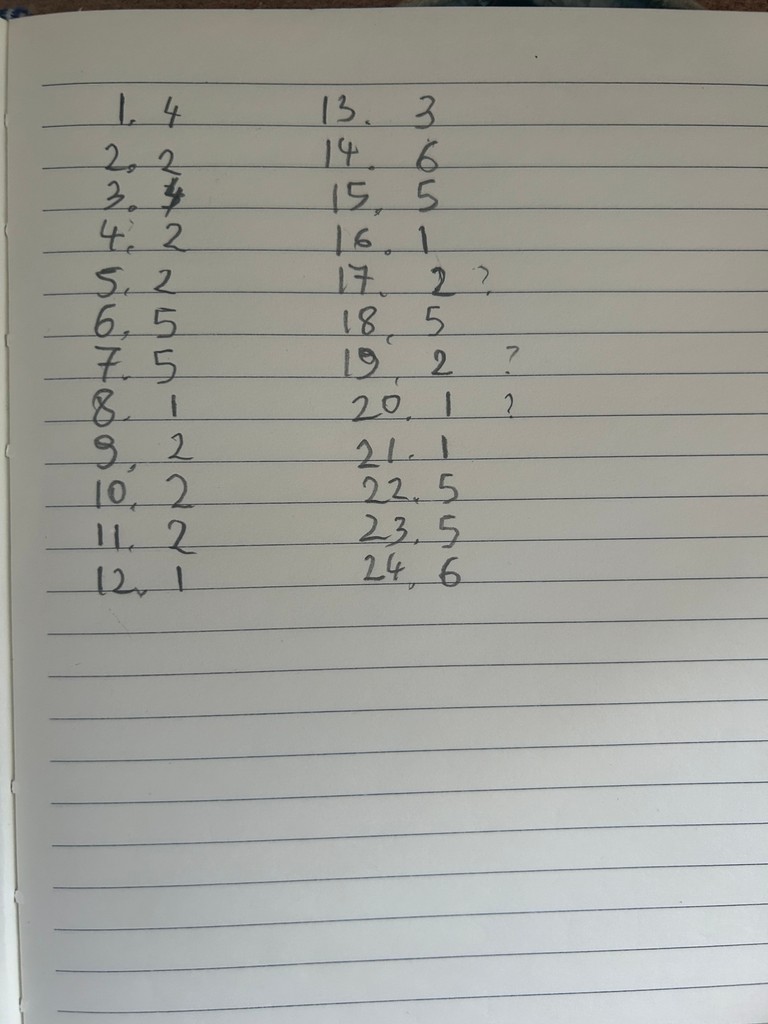 1. 4
2. 2
3. 4
4. 2
5. 2
6. 5
7. 5
8. 1
9. 2
10. 2
11. 2
12. 1
13. 3
14. 6
15. 5
16. 1
17. 2 ?
18. 5
19. 2 ?
20. 1 ?
21. 1
22. 5
23. 5
24. 6